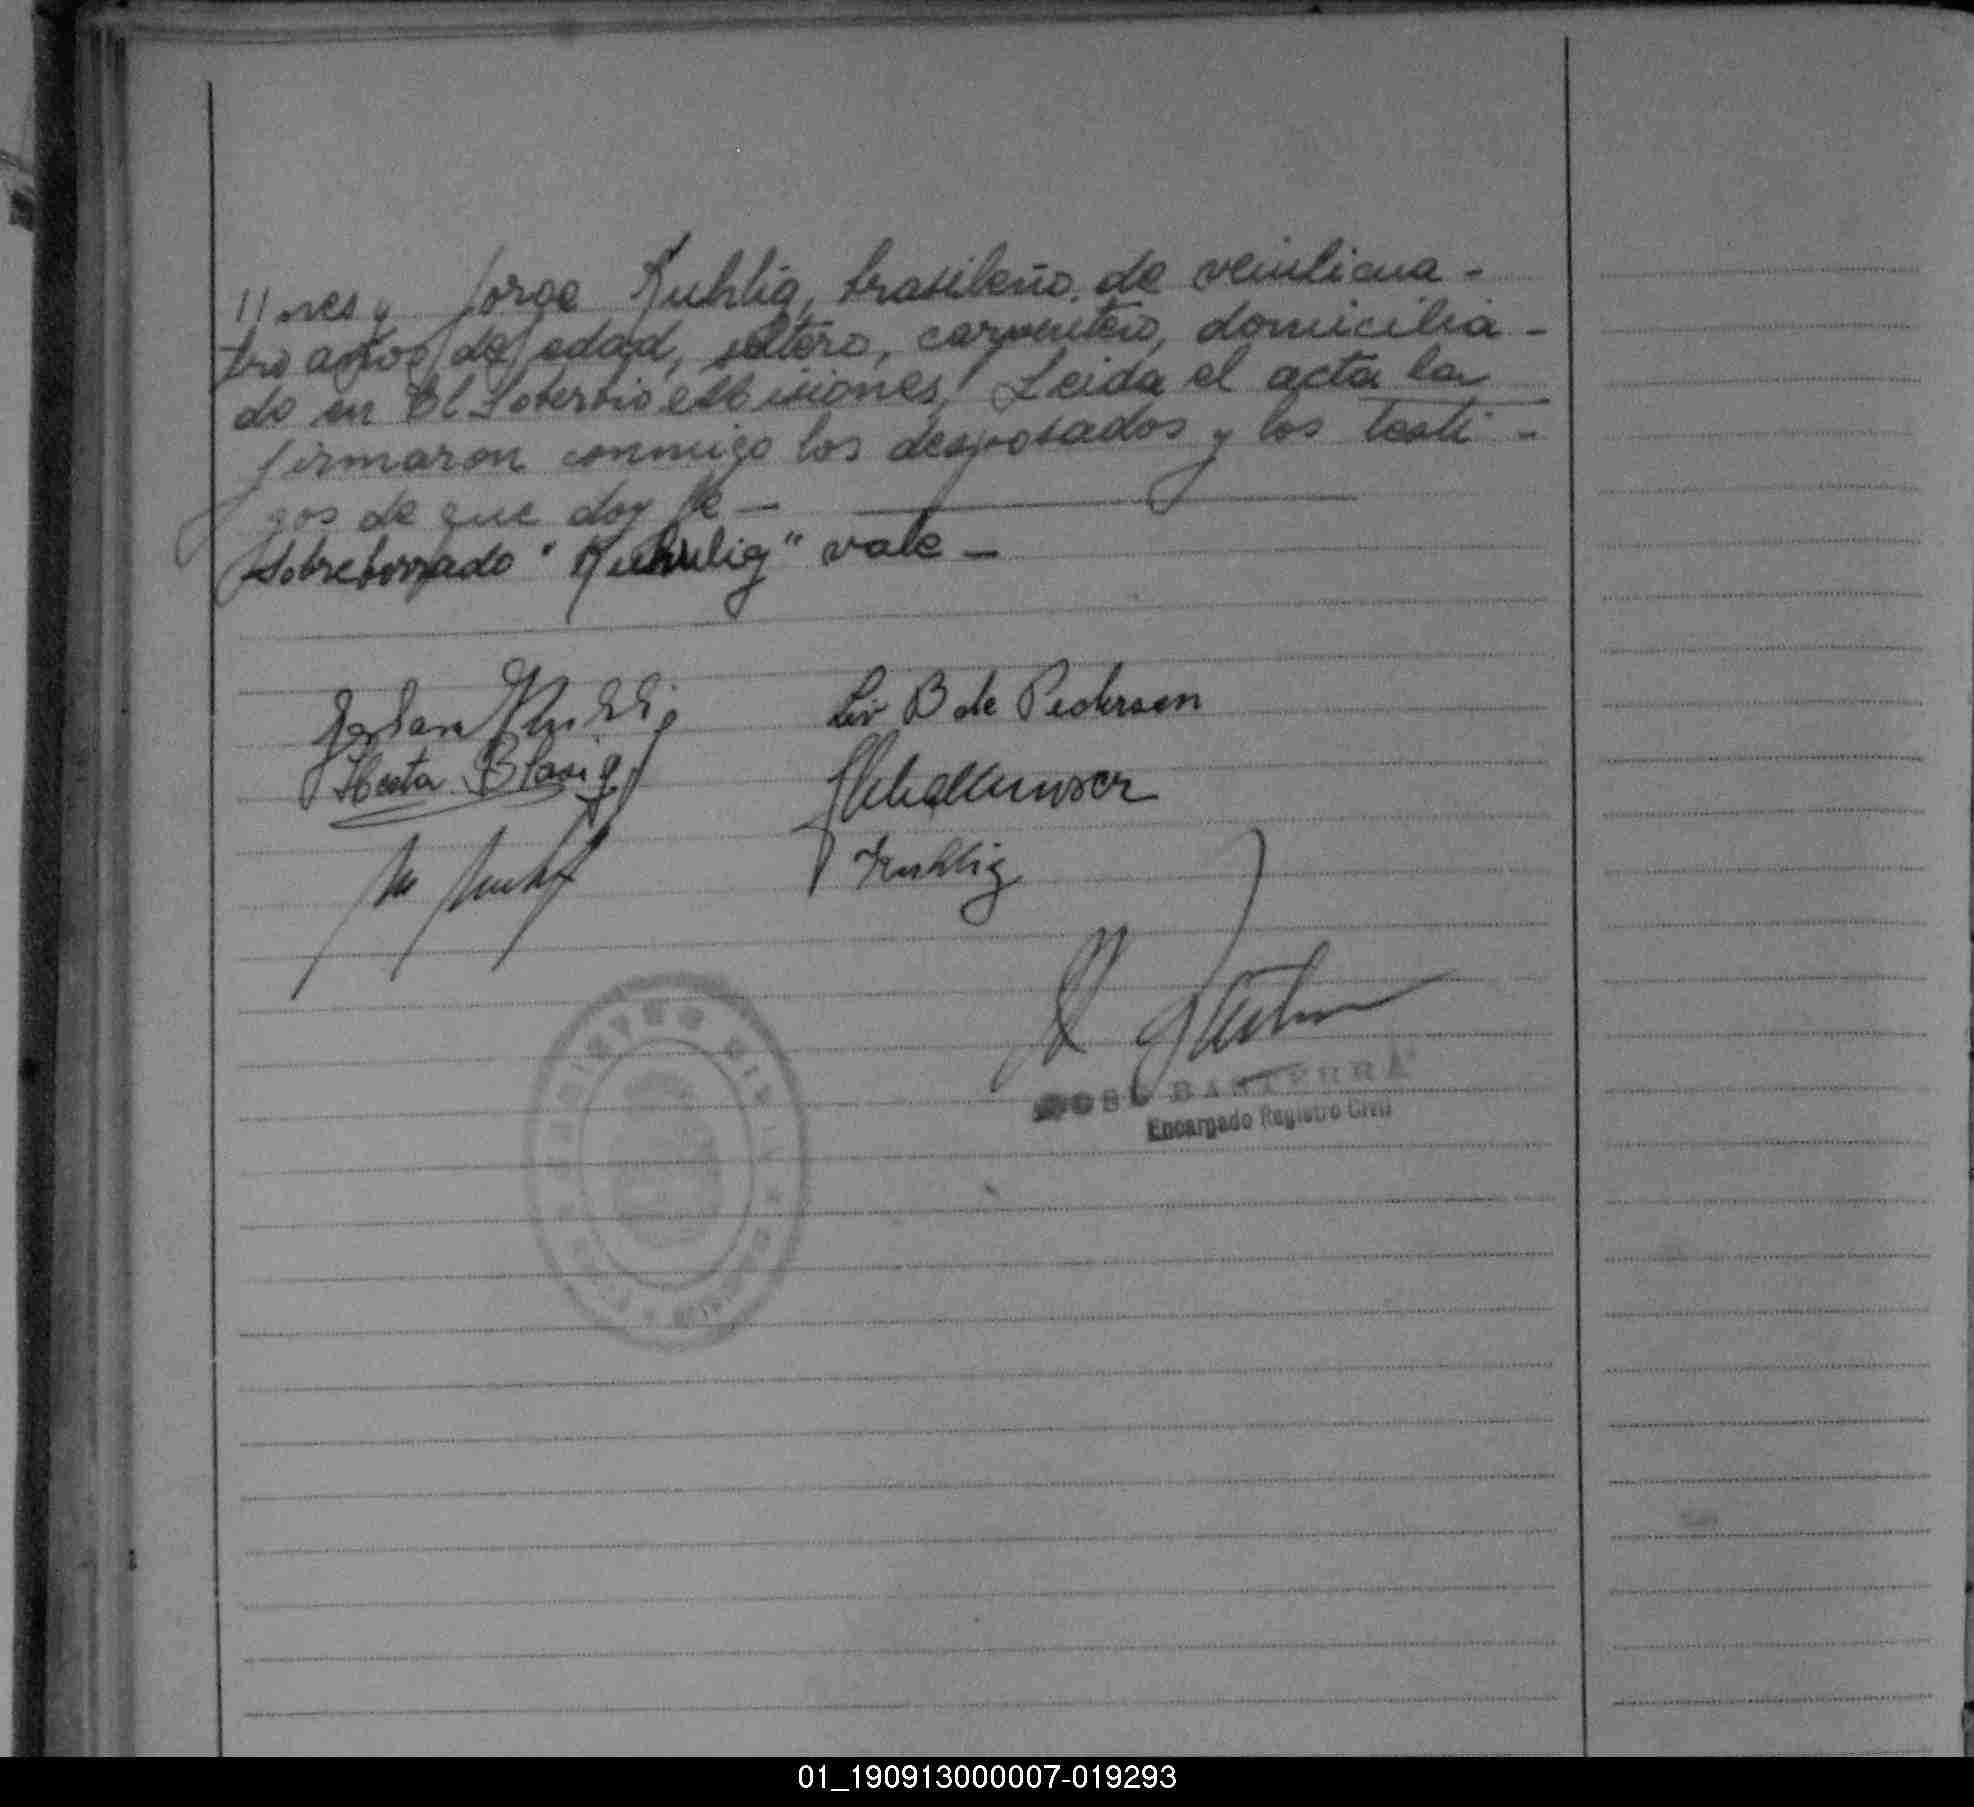 nes y Jorge Kuhlig, brasileño, de veinticua-
tro años de edad, soltero, carpintero, domicilia-
do en El Soberbio Misiones. Leida el acta la
firmaron conmigo los desposados y los testi-
gos de que doy fe —
Sobreborrado "Kuhlig" vale —
Kuhlig Liv B de Pedersen
Herta Blasig
Kuhlig
JOSE BASTERRA
Encargado Registro Civil
REGISTRO CIVIL
01_190913000007-019293